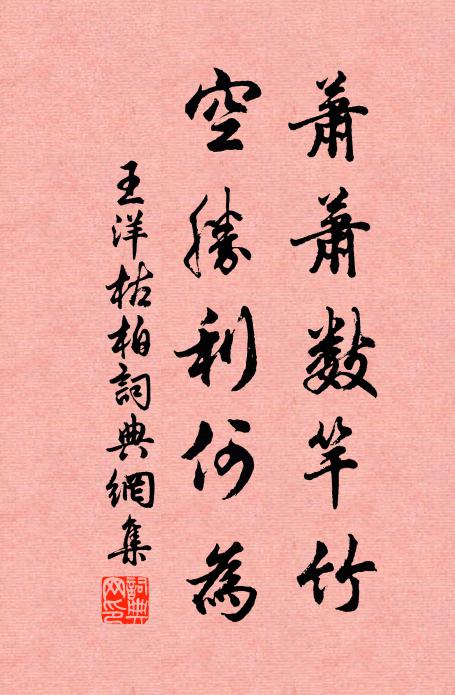 蕭蕭數竿竹
空勝利何為
王洋枯柏詞典網集
詞典
网印